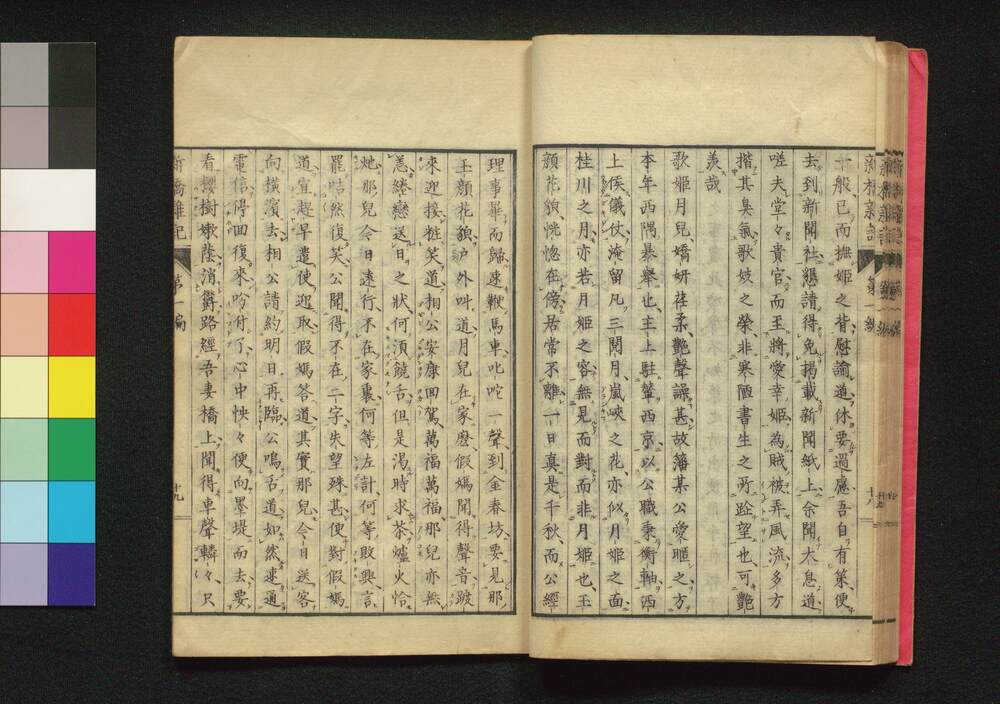 十般已而撫姬之背慰諭道休要過慮吾自有策便
去到新聞社懇請得免掲載新聞紙上余聞大息道
嗟夫堂々貴官而玉將愛幸姬為賊被弄風流多方
揩其臭氣歌妓之榮非寒陋書生之所跂望也可艷
羨哉
歌姬月兒嬌妍葆柔艷聲譟甚故藩某公愛暱之方
本年西隅暴舉也主上駐輦西京以公職秉衡軸西
上侯儀仗淹留凡三閱月嵐峽之花亦似月姬之面
桂川之月亦若月姬之容無見而對而非月姬也玉
顏花貌恍惚在傍居常不離一日真是千秋而公經
理事畢而歸速鞭馬車叱咤一聲到金春坊要見那
玉顏花貌戶外叫道月兒在家麼假媽聞得聲音跛
來迎接粧笑道相公安康回駕萬福萬福那兒亦無
恙繾戀送日之狀何須饒舌但是渴時求茶爐火恰
灺那兒今日遠行不在家裏何等左計何等敗興言
罷咭然復笑公聞得不在二字失望殊甚便對假媽
道宜趁早遣使迎取假媽答道其實那兒今日送客
向橫濱去相公請約明日再臨公鳴舌道如然速通
電信得回復來吩付了心中怏々便向墨堤而去要
看櫻樹嫩陸消鬱路經吾妻橋上聞得車聲轔々只
新橋雜記 第一編 十九